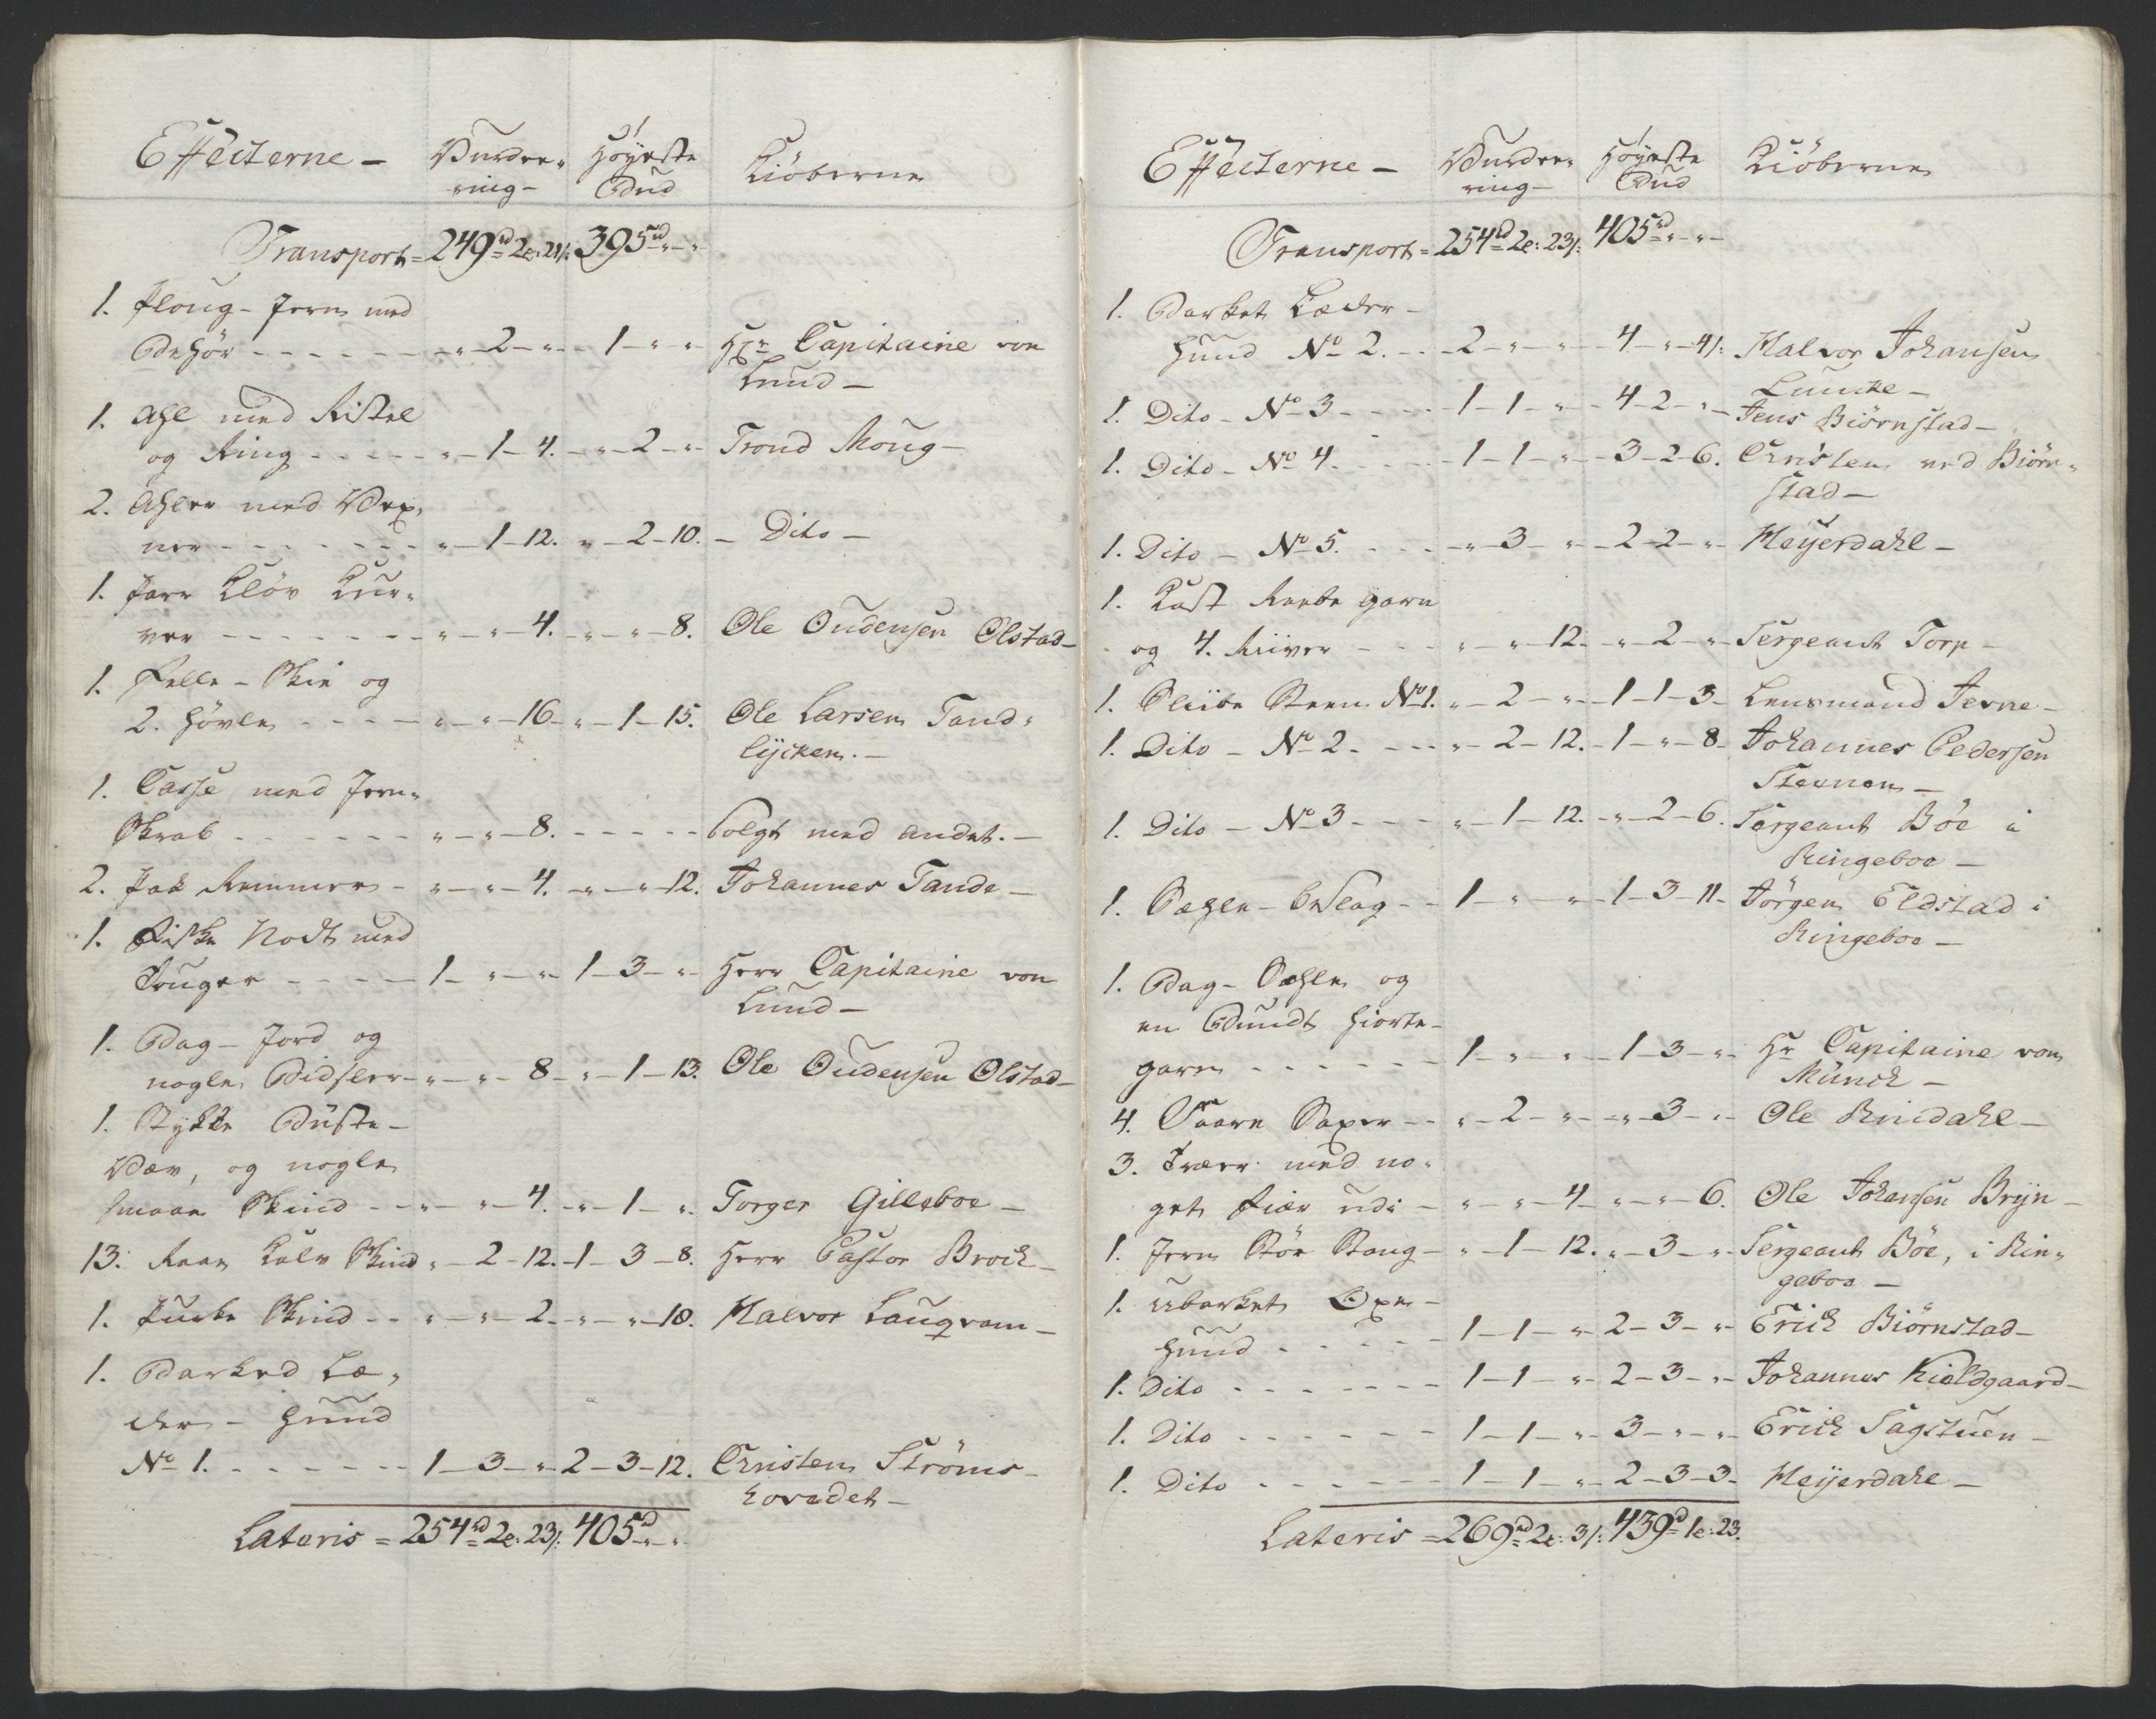 Effecterne – Vurdee- Høyeste Kiöberne
ring – Bud
Transport = 249rd 2o: 21s: 395rd " – "
1. Ploug-Jern med
Behör – – – " – 2 – " – 1 – " – " Hr: Capitaine von
Lund –
1. Ahl med Ristel
og Ring – – – " – 1 – 4. – " – 2 – " Trond Moug –
2. Ahler med
– – – " – 1 – 12. " – 2 – 10. – Dito –
1. Parr Kløv Kur-
ver – – – " – " – 4. – " – " – 8. Ole Oudensen Olstad –
1. Felle-Skie og
2. Høvle – – – " – " – 16 – " – 1 – 15. Ole Larsen Tand-
lÿcken. –
1. Casse med Jern-
Skrab – – – " – " – 8. – – – Solgt med andet. –
2. Pak Remmer – " – " – 4. – " – " – 12. Johannes Tande –
1. Fiske Nodt med
Touger – – – 1 – " – " – 1 – 3 – " Herr Capitaine von
Lund –
1. Bag-Jord og
nogle Bidsler – " – " – 8 – " – 1 – 13. Ole Oudensen Olstad –
1. Stykke Büste-
Væv, og nogle
smaae Skind – – " – " – 4. – " – 1 – ". Torger Gilleboe –
13. Raae Kalv Skind " – 2 – 12. – 1 – 3 – 8. Herr Pastor Brock –
1. Skind – – " – " – 2. – " – " – 18. Halvor Lauqvam –
1. Barked Læ-
der-Huud
No 1. – – – 1 – 3 – " – 2 – 3 – 12. Cristen Ströms-
hovedet –
Lateris = 254rd 2o: 23s: 405rd " – "
Effecterne – Vurdee- Høyeste Kiöberne
ring – Bud
Transport = 254rd 2o: 23s: 405rd " – " –
1. Barket Læder-
Huud No 2. – – 2 – " – " – 4 – " – 4s: Halvor Johansen
Luncke –
1. Dito – No 3 – – – 1 – 1 – " – 4 – 2 – " – Jens Biörnstad –
1. Dito – No 4. – – – 1 – 1 – " – 3 – 2 – 6. Cristen ved Biörn-
stad –
1. Dito – No 5. – – – " – 3 – " – 2 – 2 – " – Heÿerdahl –
1. Kast Garn
og 4. River – – – " – " – 12. – " – 2 – " – Sergeant Torp –
1. Sliibe Steen No 1. " – 2 – " – 1 – 1 – 3 – Lensmand Jevne –
1. Dito – No 2. – – – " – 2 – 12. – 1 – " – 8 – Johannes Pedersen
–
1. Dito – No 3 – – – " – 1 – 12. – " – 2 – 6. Sergeant Böe i
Ringeboe –
1. Sæhle- – – 1 – " – " – 1 – 3 – 11 – Jörgen Eldstad i
Ringeboe –
1. Bag-Sæhle og
en Bundt Hiorte-
garn – – – 1 – " – " – 1 – 3 – " – Hr Capitaine von
Münch –
4. Faare Saxer – – " – 2 – " – " – 3 – " – Ole Rindahl –
3. med no-
get Fiær udi – " – " – 4 – " – " – 6. Ole Johansen Brÿn –
1. Jern Stör Stang – " – 1 – 12. " – 3 – " – Sergeant Böe, i Rin-
geboe –
1. ubarket Oxe-
Huud – – – 1 – 1 – " – 2 – 3 – " – Erich Biörnstad –
1. Dito – – – 1 – 1 – " – 2 – 3 – " – Johannes Kieldgaard –
1. Dito – – – 1 – 1 – " – 3 – " – " – Erich Sagstuen –
1. Dito – – – 1 – 1 – " – 2 – 3 – 3 – Heÿerdahl –
Lateris = 269rd 2o: 3s: 439rd 1o: 23.